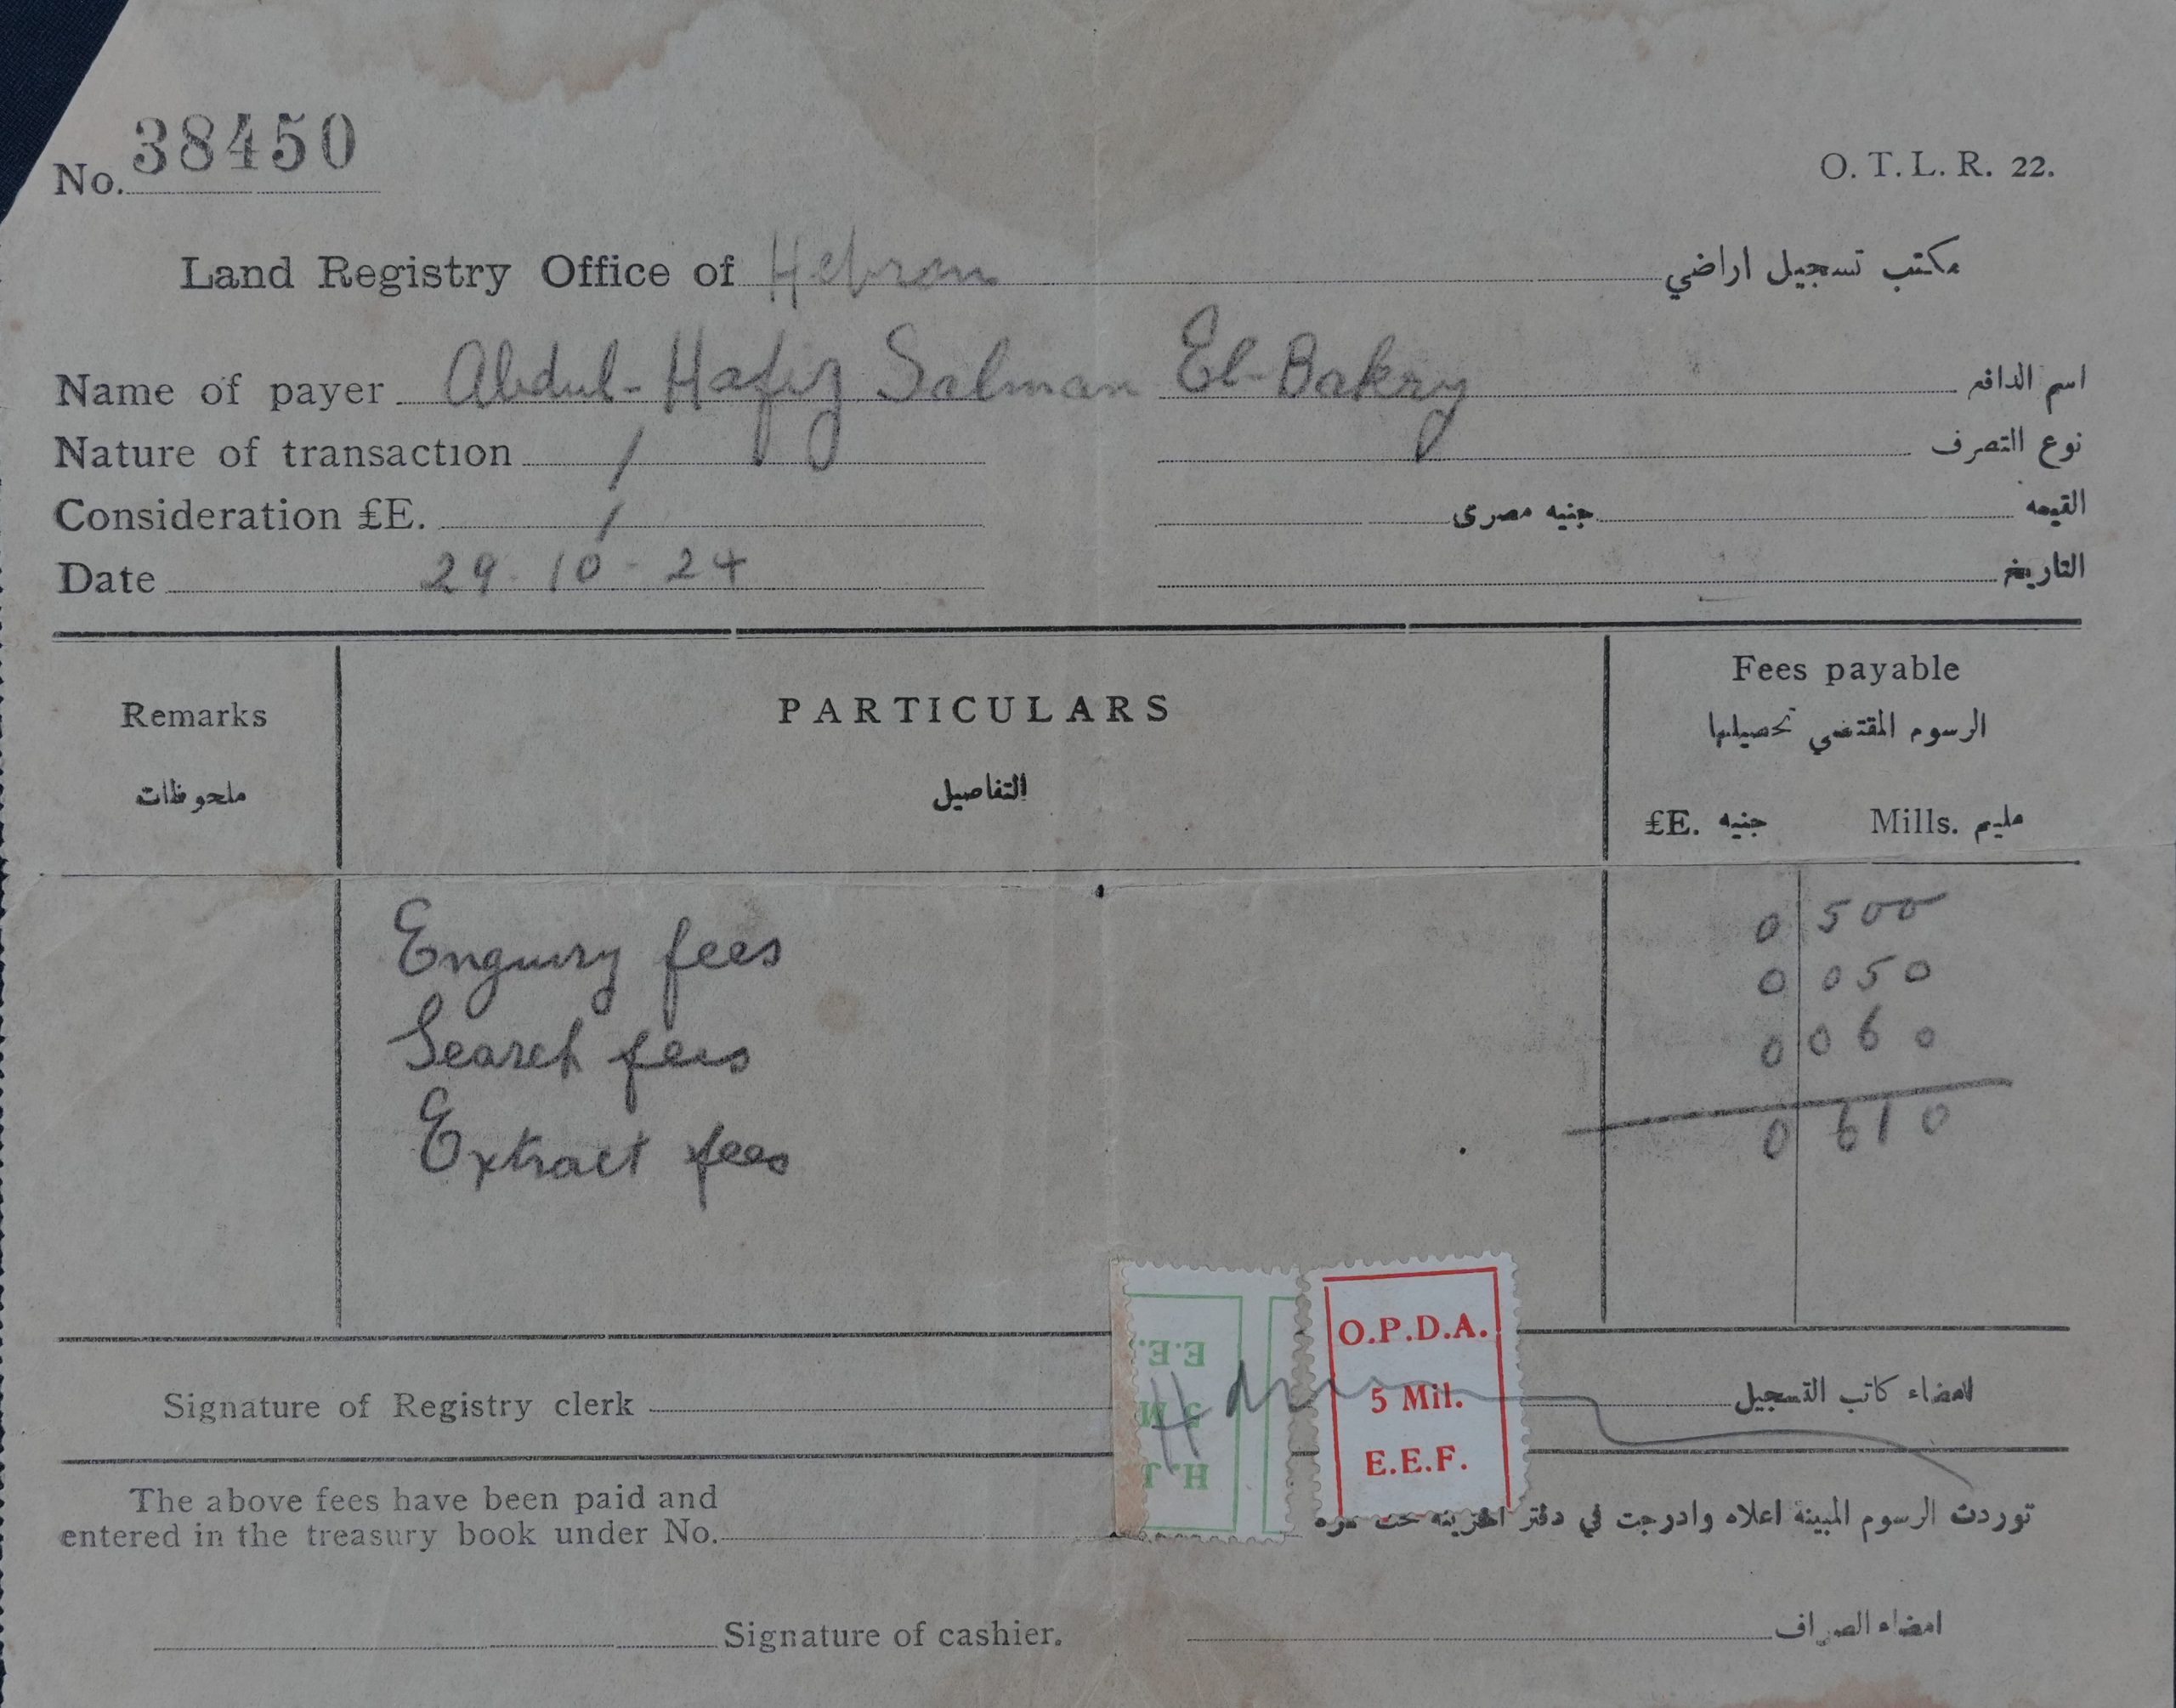 No. 38450
O. T. L. R. 22.
Land Registry Office of Hebron مكتب تسجيل اراضي
Name of payer Abdul-Hafiz Salman El-Bakry اسم الدافع
Nature of transaction / نوع التصرف
Consideration £E. / جنيه مصرى القيمه
Date 29-10-24 التاريخ
Remarks
ملحوظات
PARTICULARS
التفاصيل
Fees payable
الرسوم المقتضي تحصيلها
£E. جنيه Mills. مليم
Enquiry fees 0 500
Search fees 0 050
Extract fees 0 060
0 610
E.E.
5 M
H.J
O.P.D.A.
5 Mil.
E.E.F.
Signature of Registry clerk امضاء كاتب التسجيل
The above fees have been paid and
entered in the treasury book under No.
توردت الرسوم المبينة اعلاه وادرجت في دفتر الخزينه تحت نمره
Signature of cashier. امضاء الصراف